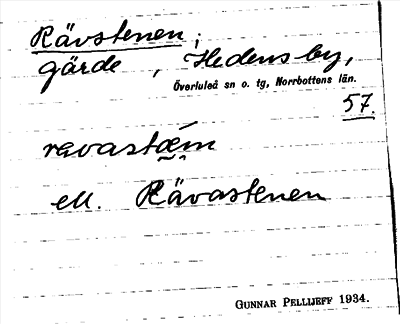 Rävstenen;
gärde, Hedensby,
Överluleå sn o. tg, Norrbottens län.
57.
revastǽm
ell. Rävastenen
GUNNAR PELLIJEFF 1934.